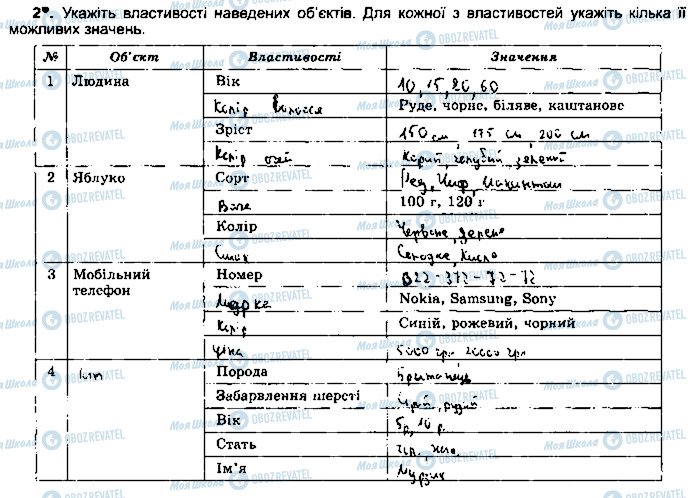 2. Укажіть властивості наведених об'єктів. Для кожної з властивостей укажіть кілька її
можливих значень.
№ Об'єкт Властивості Значення
1 Людина Вік 10, 15, 20, 60
Колір волосся Руде, чорне, біляве, каштанове
Зріст 150 см, 175 см, 200 см
Колір очей Карий голубий, зелений
2 Яблуко Сорт
Вага 100 г, 120 г
Колір Червоне, зелене
Смак Солодке, кисле
3 Мобільний телефон Номер 022-372-72-72
Марка Nokia, Samsung, Sony
Колір Синій, рожевий, чорний
Ціна 5000 грн 20000 грн
4 Кіт Порода Британець
Забарвлення шерсті рудий
Вік 5р, 10 р.
Стать
Ім'я Мурзик
Моя Школа OBOZREVATEL